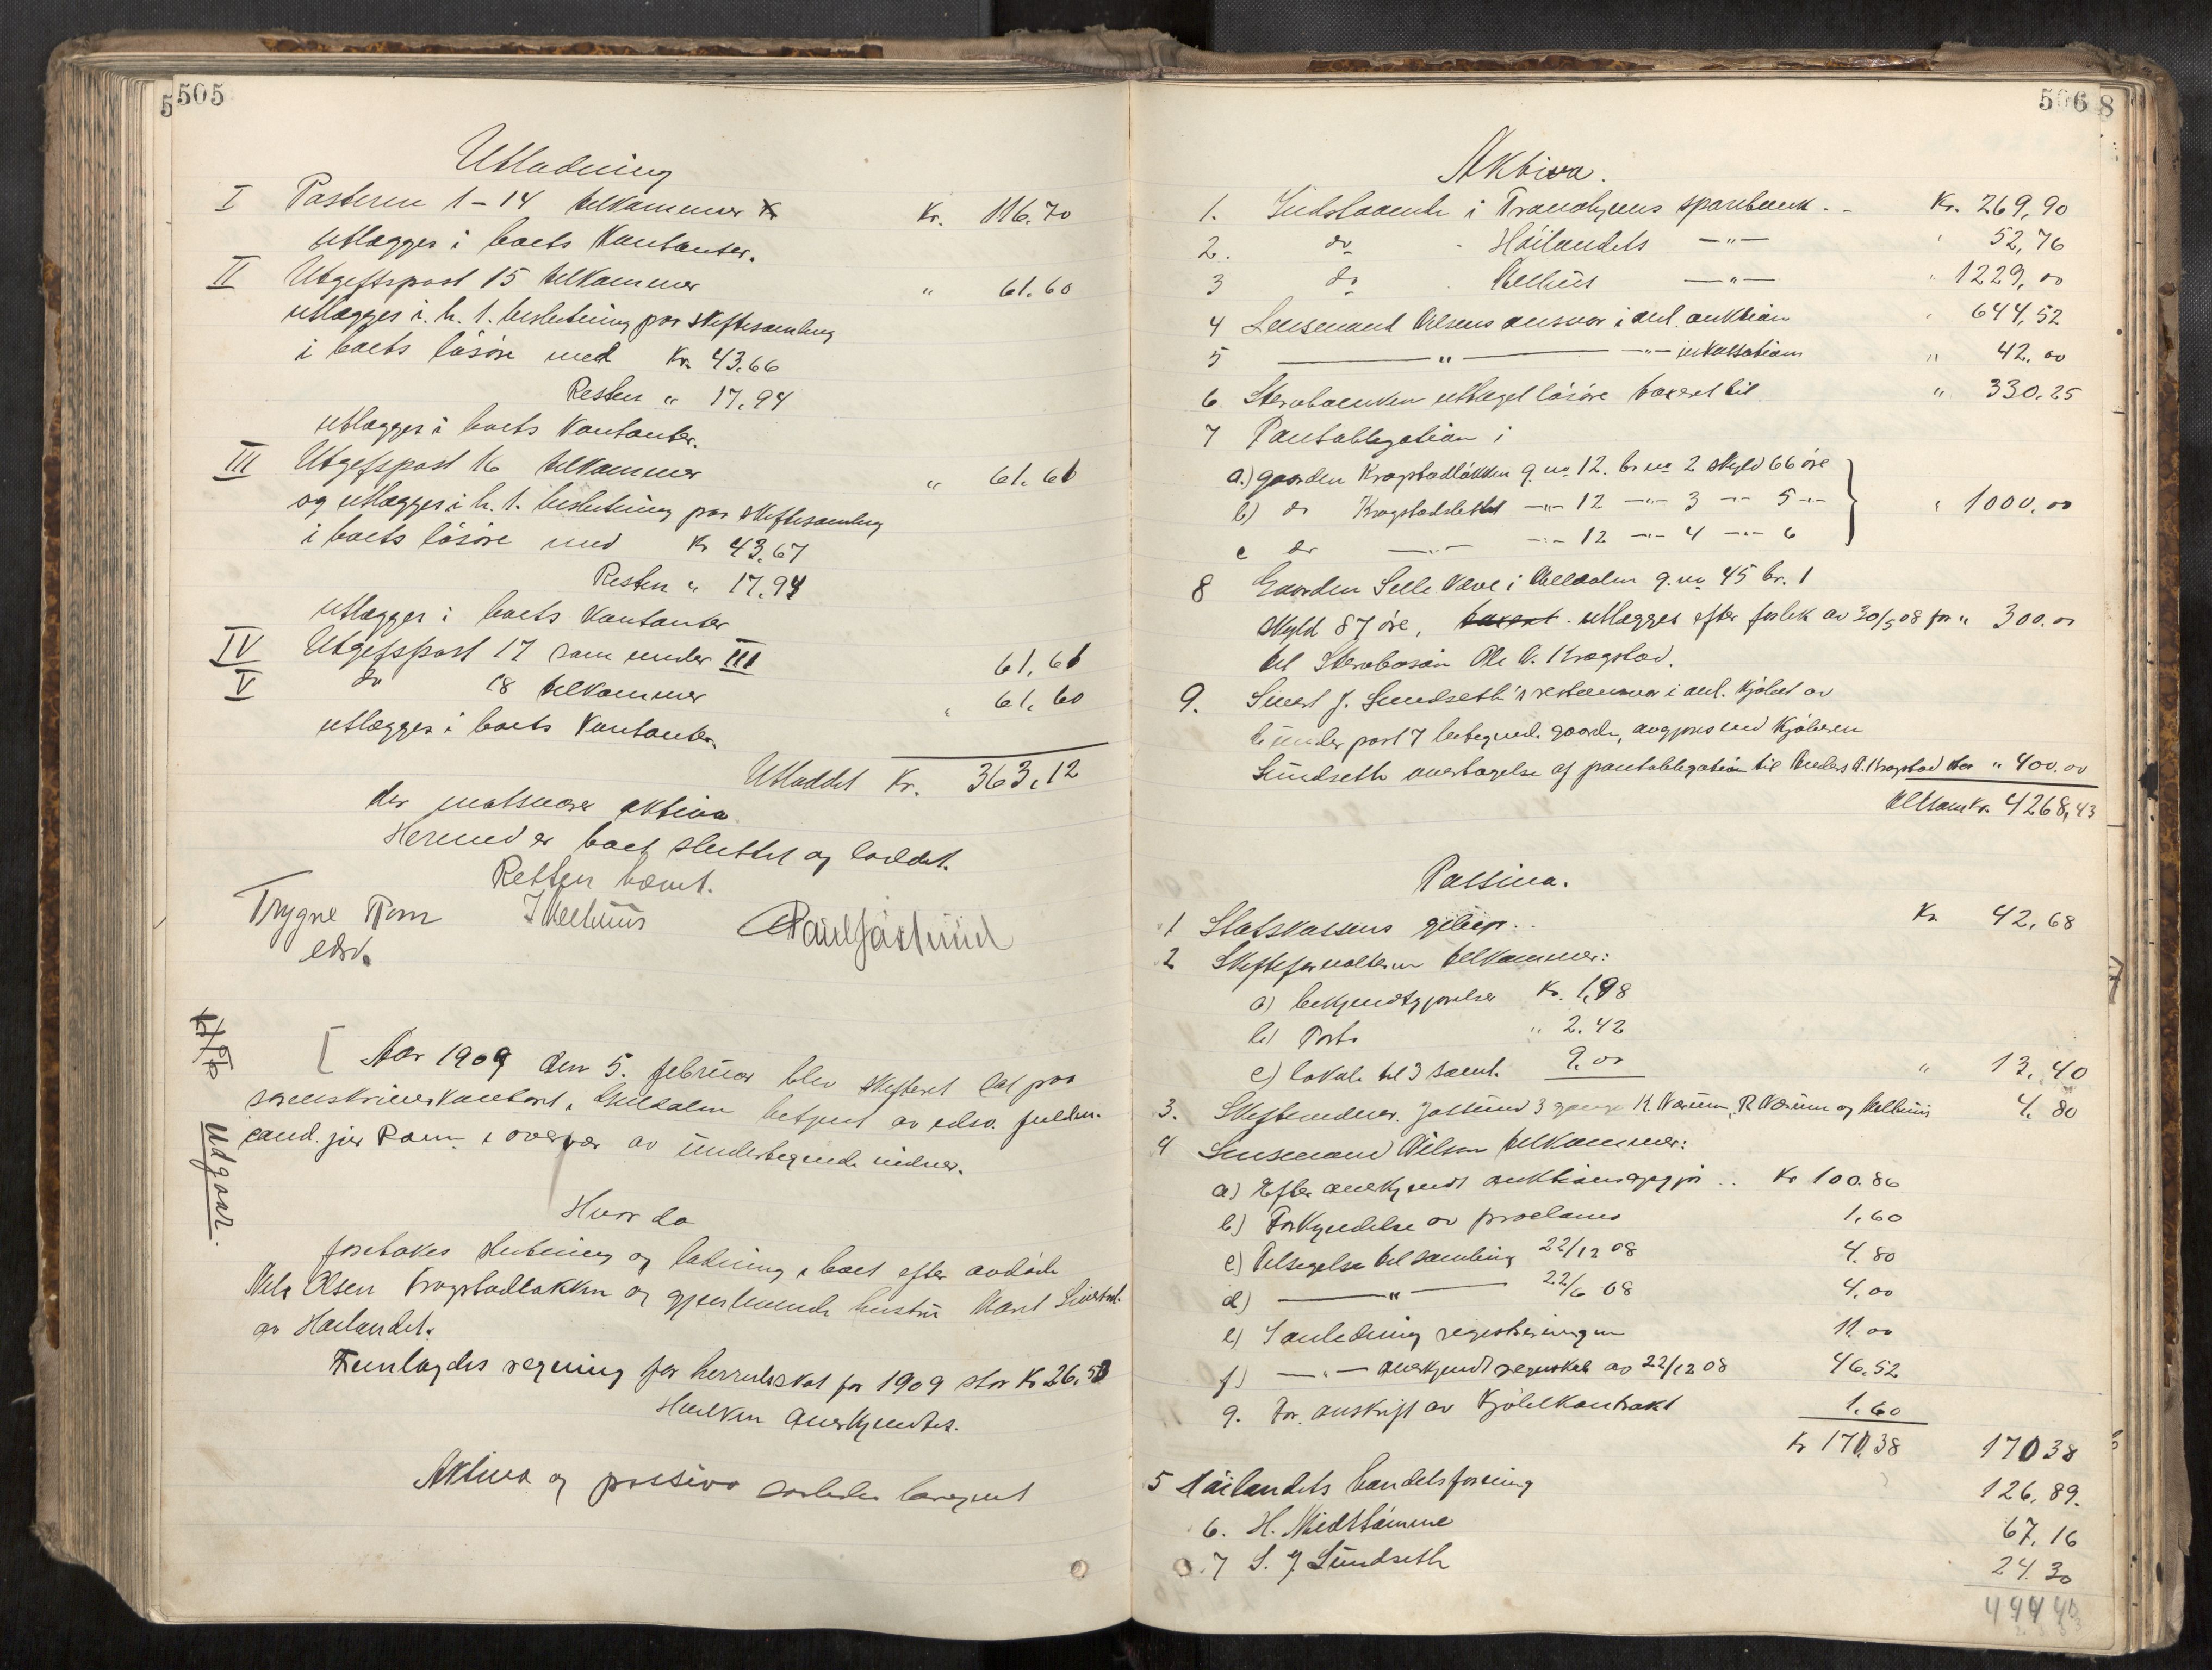 505
Utlodning
I Posterne 1-14 tilkommer Kr. 116.70
utlægges i boets Kontanter.
II Utgiftspost 15 tilkommer " 61.60
utlægges i h. t. beslutning paa skiftesamling
i boets løsøre med Kr. 43.66
Resten " 17.94
utlægges i boets Kontanter.
III Utgiftspost 16 tilkommer " 61.61
og utlægges i h. t. beslutning paa skiftesamling
i boets løsøre med Kr 43.67
Resten " 17.94
utlægges i boets Kontanter
IV Utgiftspost 17 som under III 61.61
V do 18 tilkommer " 61.60
utlægges i boets Kontanter
Utloddet Kr. 363.12
der motsvarer aktiva
Hermed er boet sluttet og loddet.
Retten hævet.
Trygve Rom J Melhuus Paul Jøssund
edsv.
Udgaar.
Aar 1909 den 5. februar blev skifteret sat paa
sorenskriverkontoret i Guldalen betjent av edsv. fuldm.
cand. jur Rom i overvær av undertegnede vidner.
Hvor da
foretokes slutning og lodning i boet efter avdøde
Nils Olsen Krogstadløkken og gjenlevende hustru Marit Sivertsd.
av Høilandet.
Fremlagdes regning for herredsskat for 1909 stor Kr 26.50
Hvilken anerkjendtes.
Aktiva og passiva saaledes beregnet
506 8
Aktiva.
1. Indstaaende i Trondhjems sparebank . - Kr. 269,90
2. do - Høilandets —"— " 52,76
3 do . Melhus —"— " 1229,00
4 Lensmand Nilsens ansvar i anl. auktion " 644,52
5 ——"—— —"— inkassation " 42.00
6 Stervboenken utlagt løsøre taxeret til " 330.25
7 Pantobligation i
a.) gaarden Krogstadløkken g. no 12. br no 2 skyld 66 øre
b) do Krogstadslettet —"— 12 —"— 3 —"— 5 —"—
c do —"— —"— 12 —"— 4 —"— 6
" 1000.00
8 Gaarden i g. no 45 br. 1
skyld 87 øre, taxert utlægges efter forlik av 30/5 08 for " 300.00
til Stervbosøn Ole N. Krogstad.
9. Sivert J. Sundseth's restansvar i anl. kjøbet av
de under post 7 betegnede gaarde, avgjøres ved kjøberen
Sundseth overtagelse af pantobligation til Anders A. Krogstad stor " 400.00
Altsaa Kr. 4268,43
Passiva.
1 Statskassens gebyr .. Kr 42,68
2 Skifteforvalteren tilkommer:
a) bekjendtgjørelser Kr. 1,98
b) Porto " 2.42
c) lokale til 3 saml. 9.00 " 13.40
3. Skiftevidner. Jøssund 3 gange K. Værum, R Værum og Melhuus 4,80
4 Lensmand Nilsen tilkommer:
a) Efter anerkjendt auktionsopgjør .. Kr 100.86
b) Forkyndelse av proclama 1,60
c) Tilsigelse til samling 22/12 08 4.80
d) ——"—— 22/6 08 4.00
e) I anledning registreringen 11.00
f) —"— anerkjendt regnskab av 22/12 08 46.52
g. For avskrift av Kjøbekontrakt 1.60
Kr 170.38 170 38
5 Høilandets handelsforening 126,89.
6. H. Midtsømme 67,16
7 S. J. Sundseth 24.30